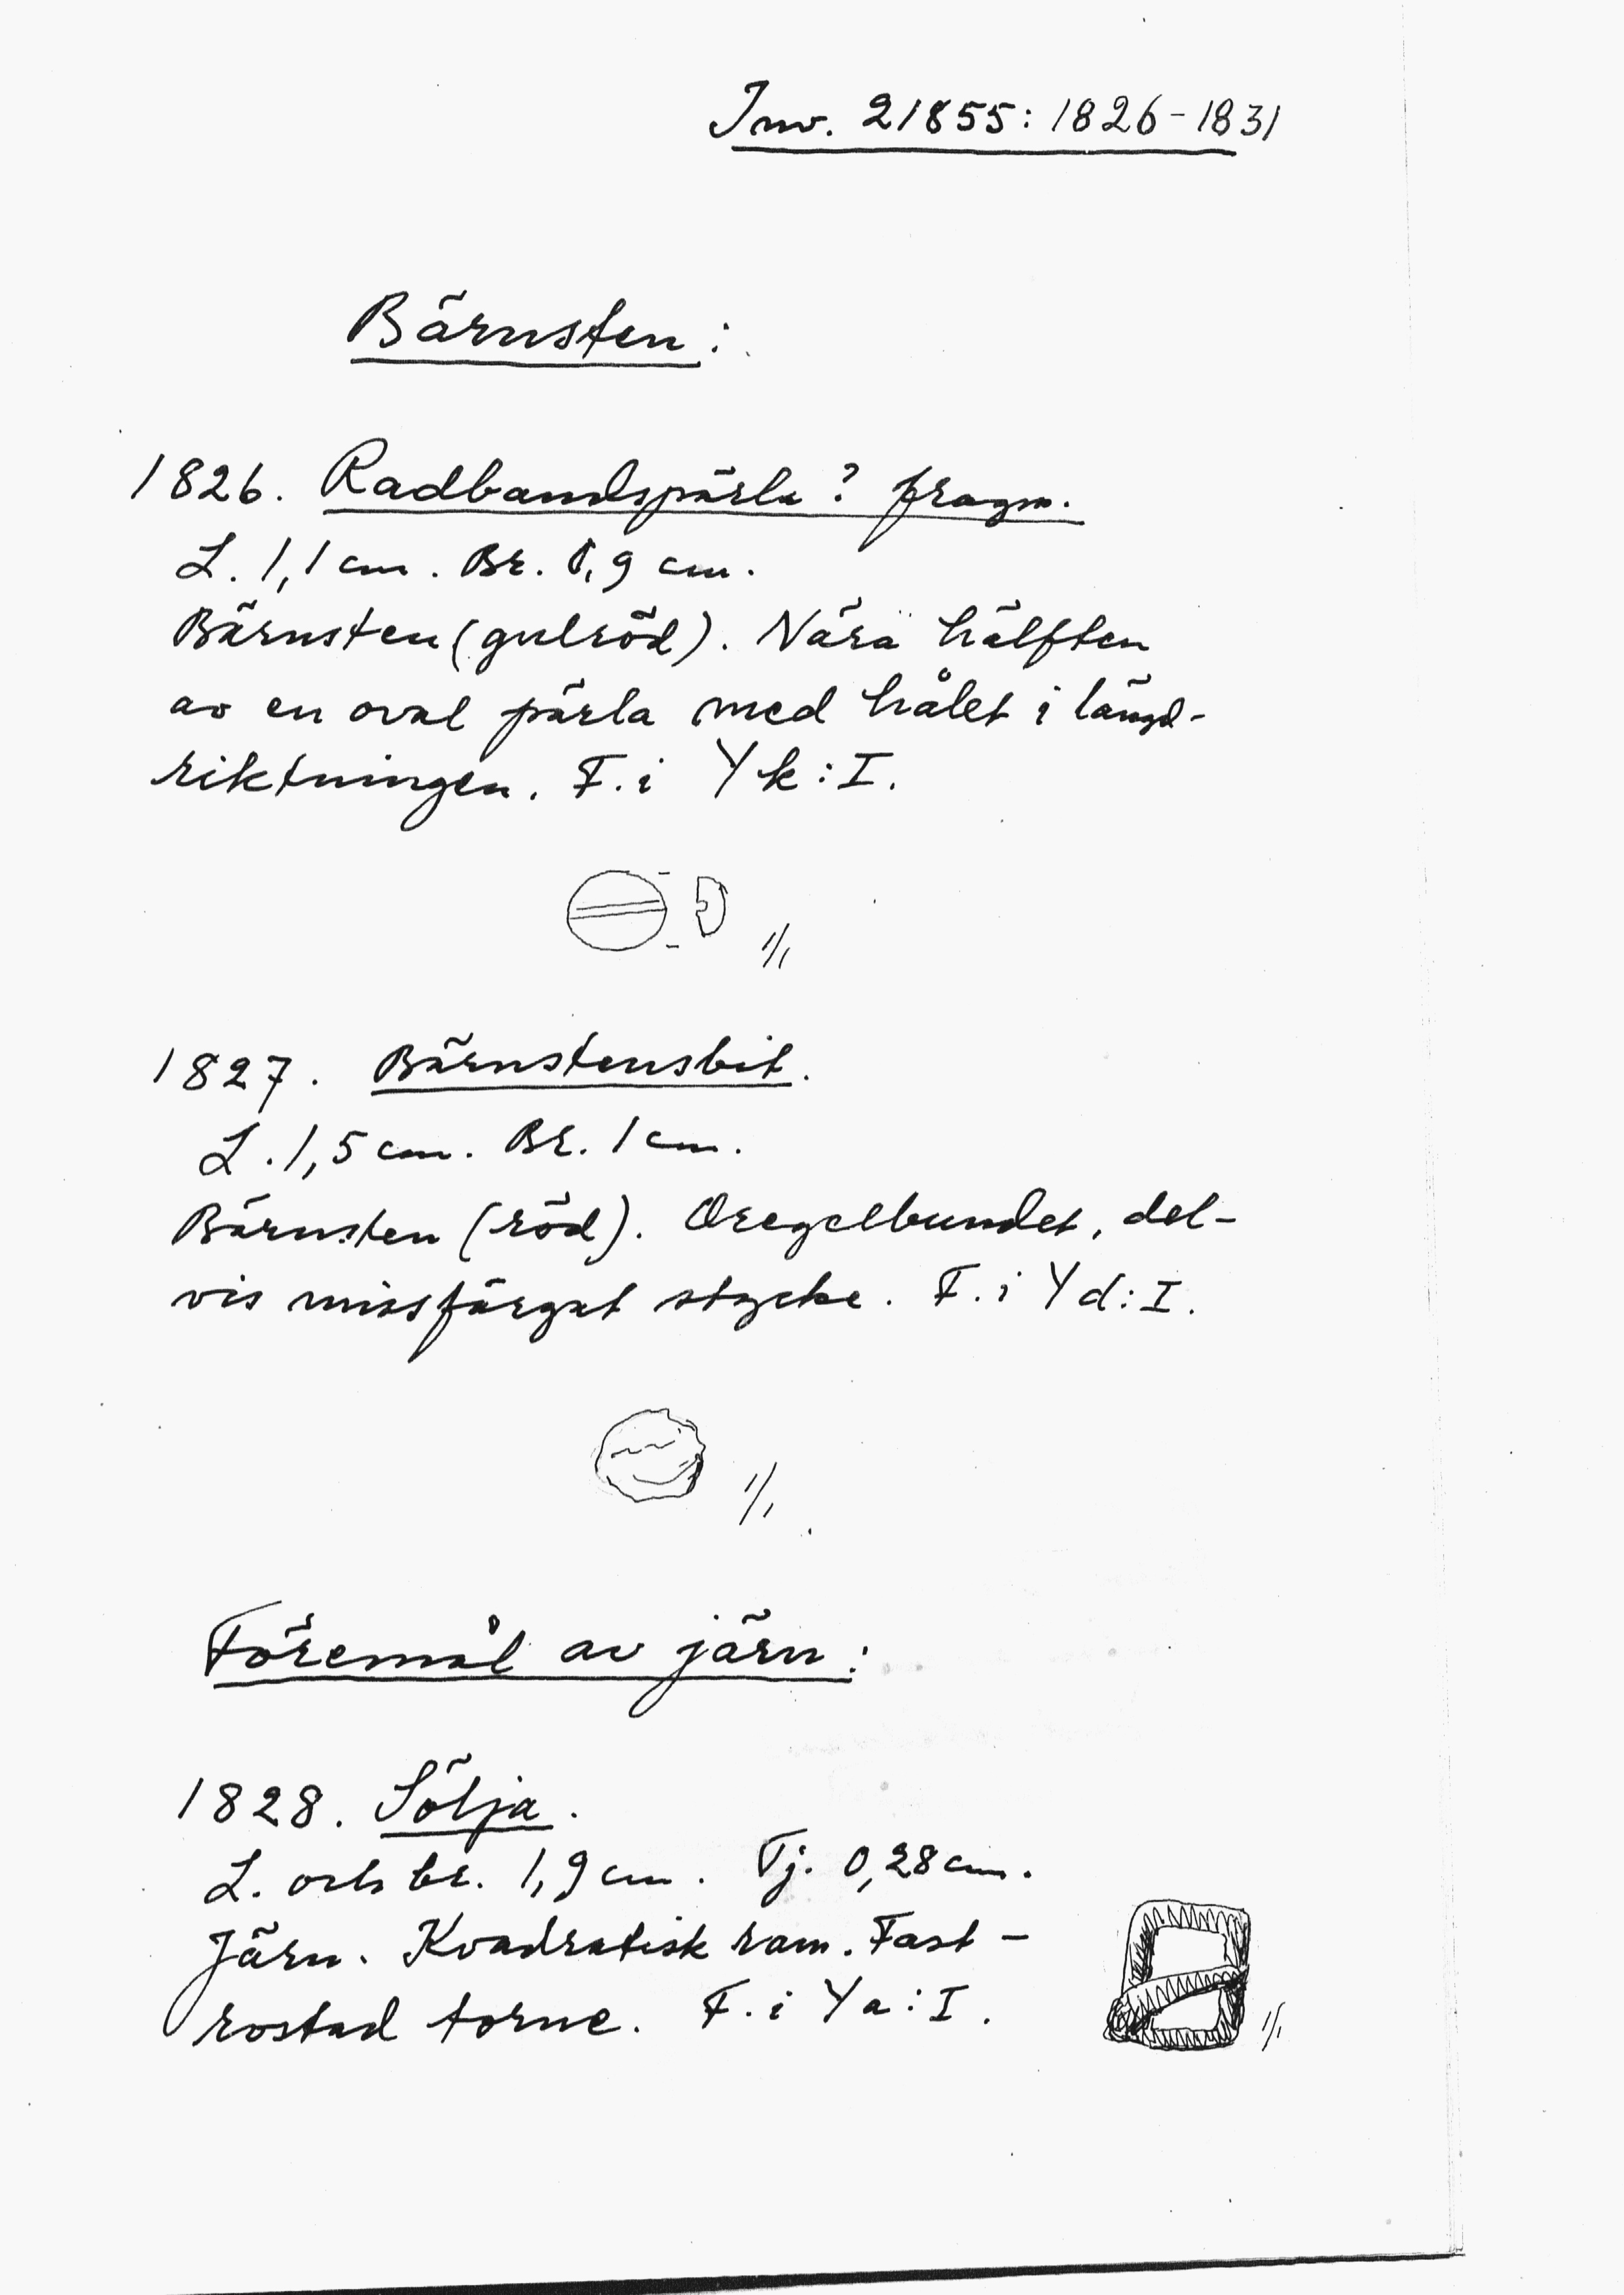 Inv. 21855: 1826-1831
Bärnsten:
1826. Radbandspärla? fragm.
L. 1,1 cm. Br. 0,9 cm.
Bärnsten (gulröd). Nära hälften
av en oval pärla med hålet i längd-
riktningen. F. i Yk:I.
1/1
1827. Bärnstensbit.
L. 1,5 cm. Br. 1 cm.
Bärnsten (röd). Oregelbundet, del-
vis missfärgat stycke. F. i Yd:I.
1/1
Föremål av järn:
1828. Sölja.
L. och br. 1,9 cm. Tj. 0,28 cm.
Järn. Kvadratisk ram. Fast-
rostad torne. F. i Ya:I.
1/1